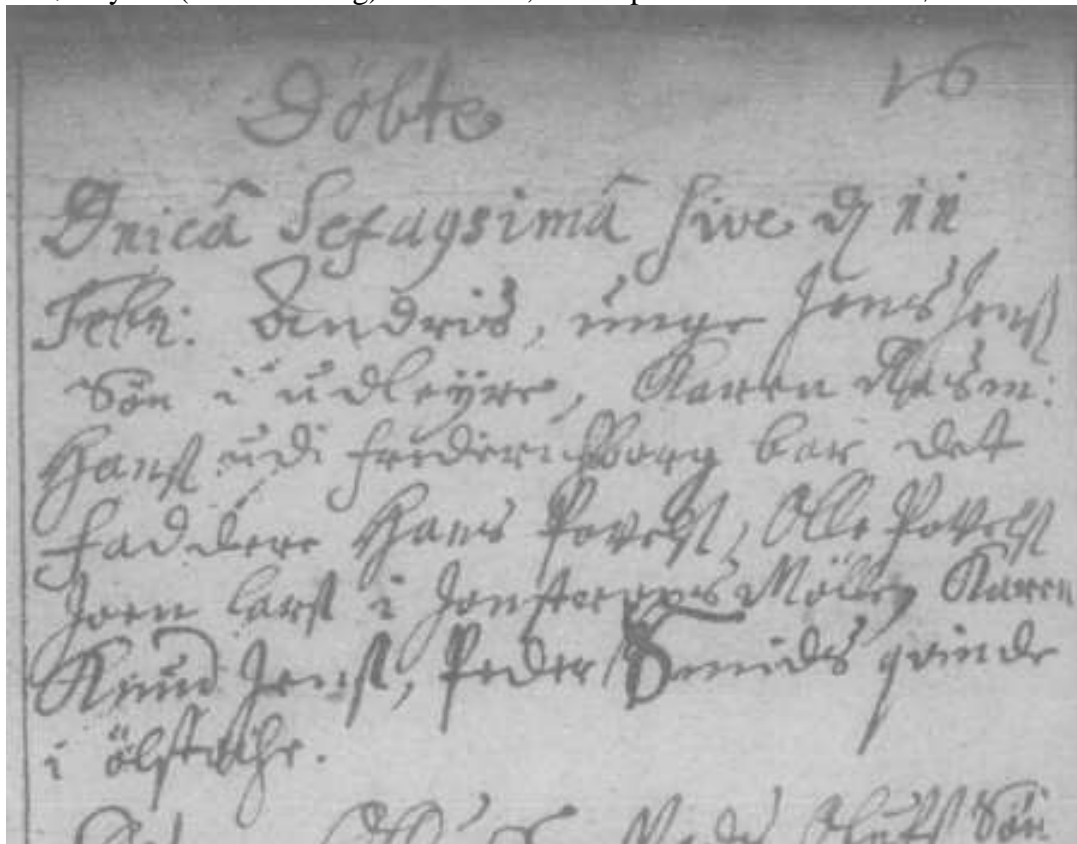 Döbte 16
Dnicâ Sexagsimâ sive d 11
Febr: Andris, unge Jens Jens
Sön i udleyre, Karen Rasm:
Hans udi friderichsborg bar det
faddere Hans Povels, Olle Povels
Joen Lars i Jonstorps Mölle, Karen
Knud Jens, Peder Smids qvinde
i ölstöche.
Peder Sön